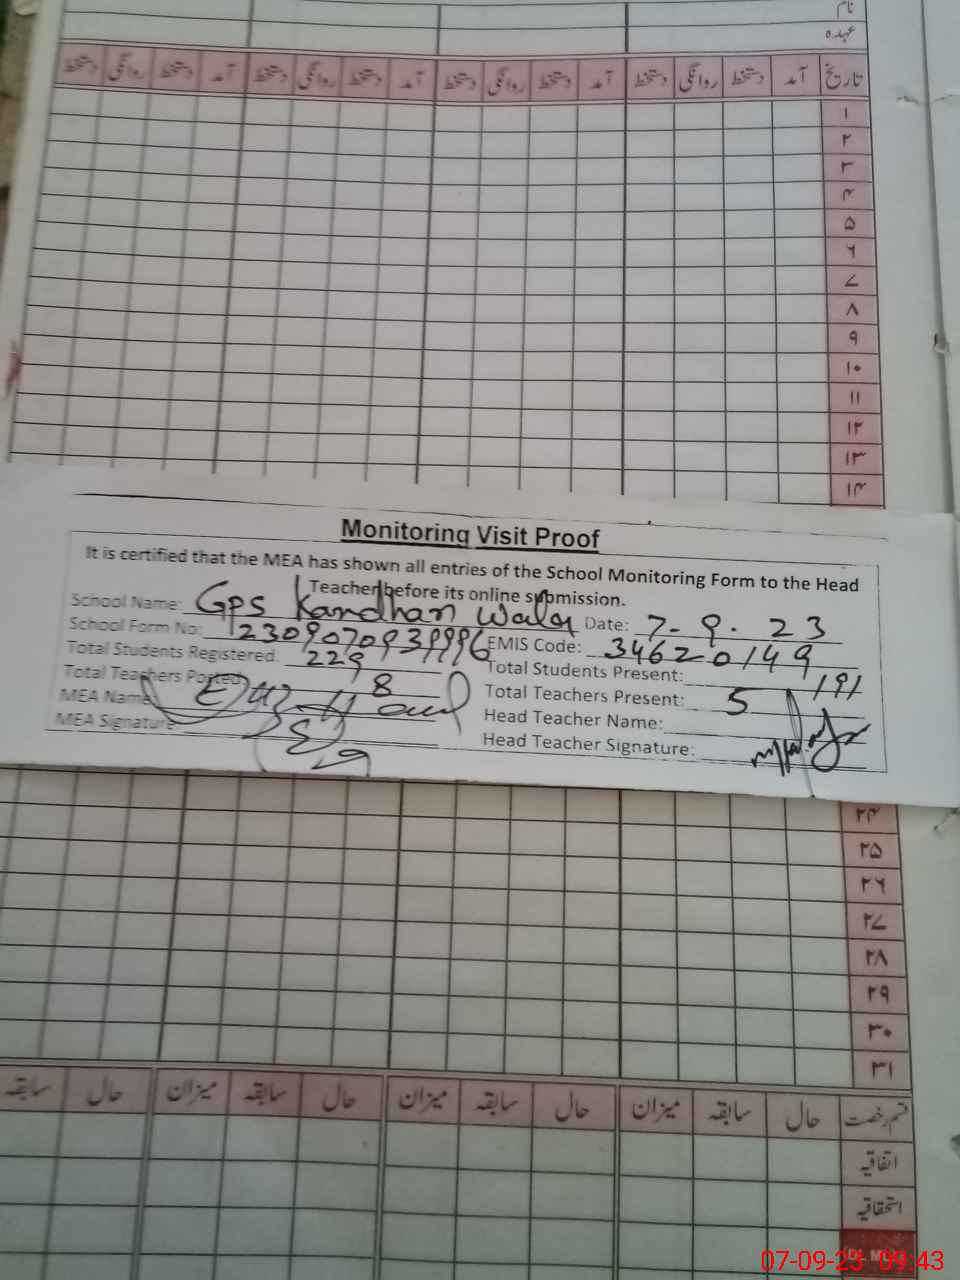 نام
عہدہ
تاریخ آمد دستخط روانگی دستخط آمد دستخط روانگی دستخط آمد دستخط روانگی دستخط آمد دستخط روانگی دستخط
۱
۲
۳
۴
۵
۶
۷
۸
۹
۱۰
۱۱
۱۲
۱۳
۱۴
Monitoring Visit Proof
It is certified that the MEA has shown all entries of the School Monitoring Form to the Head
Teacher before its online submission.
School Name: GPS Kandhan Wala Date: 7-9-23
School Form No: EMIS Code: 34620149
Total Students Registered: 229 Total Students Present: 191
Total Teachers Posted 8 Total Teachers Present: 5
MEA Name: Head Teacher Name:
MEA Signature: Head Teacher Signature:
۲۴
۲۵
۲۶
۲۷
۲۸
۲۹
۳۰
۳۱
قسم رخصت حال سابقہ میزان حال سابقہ میزان حال سابقہ میزان حال سابقہ
اتفاقیہ
استحقاقیہ
07-09-23 09:43